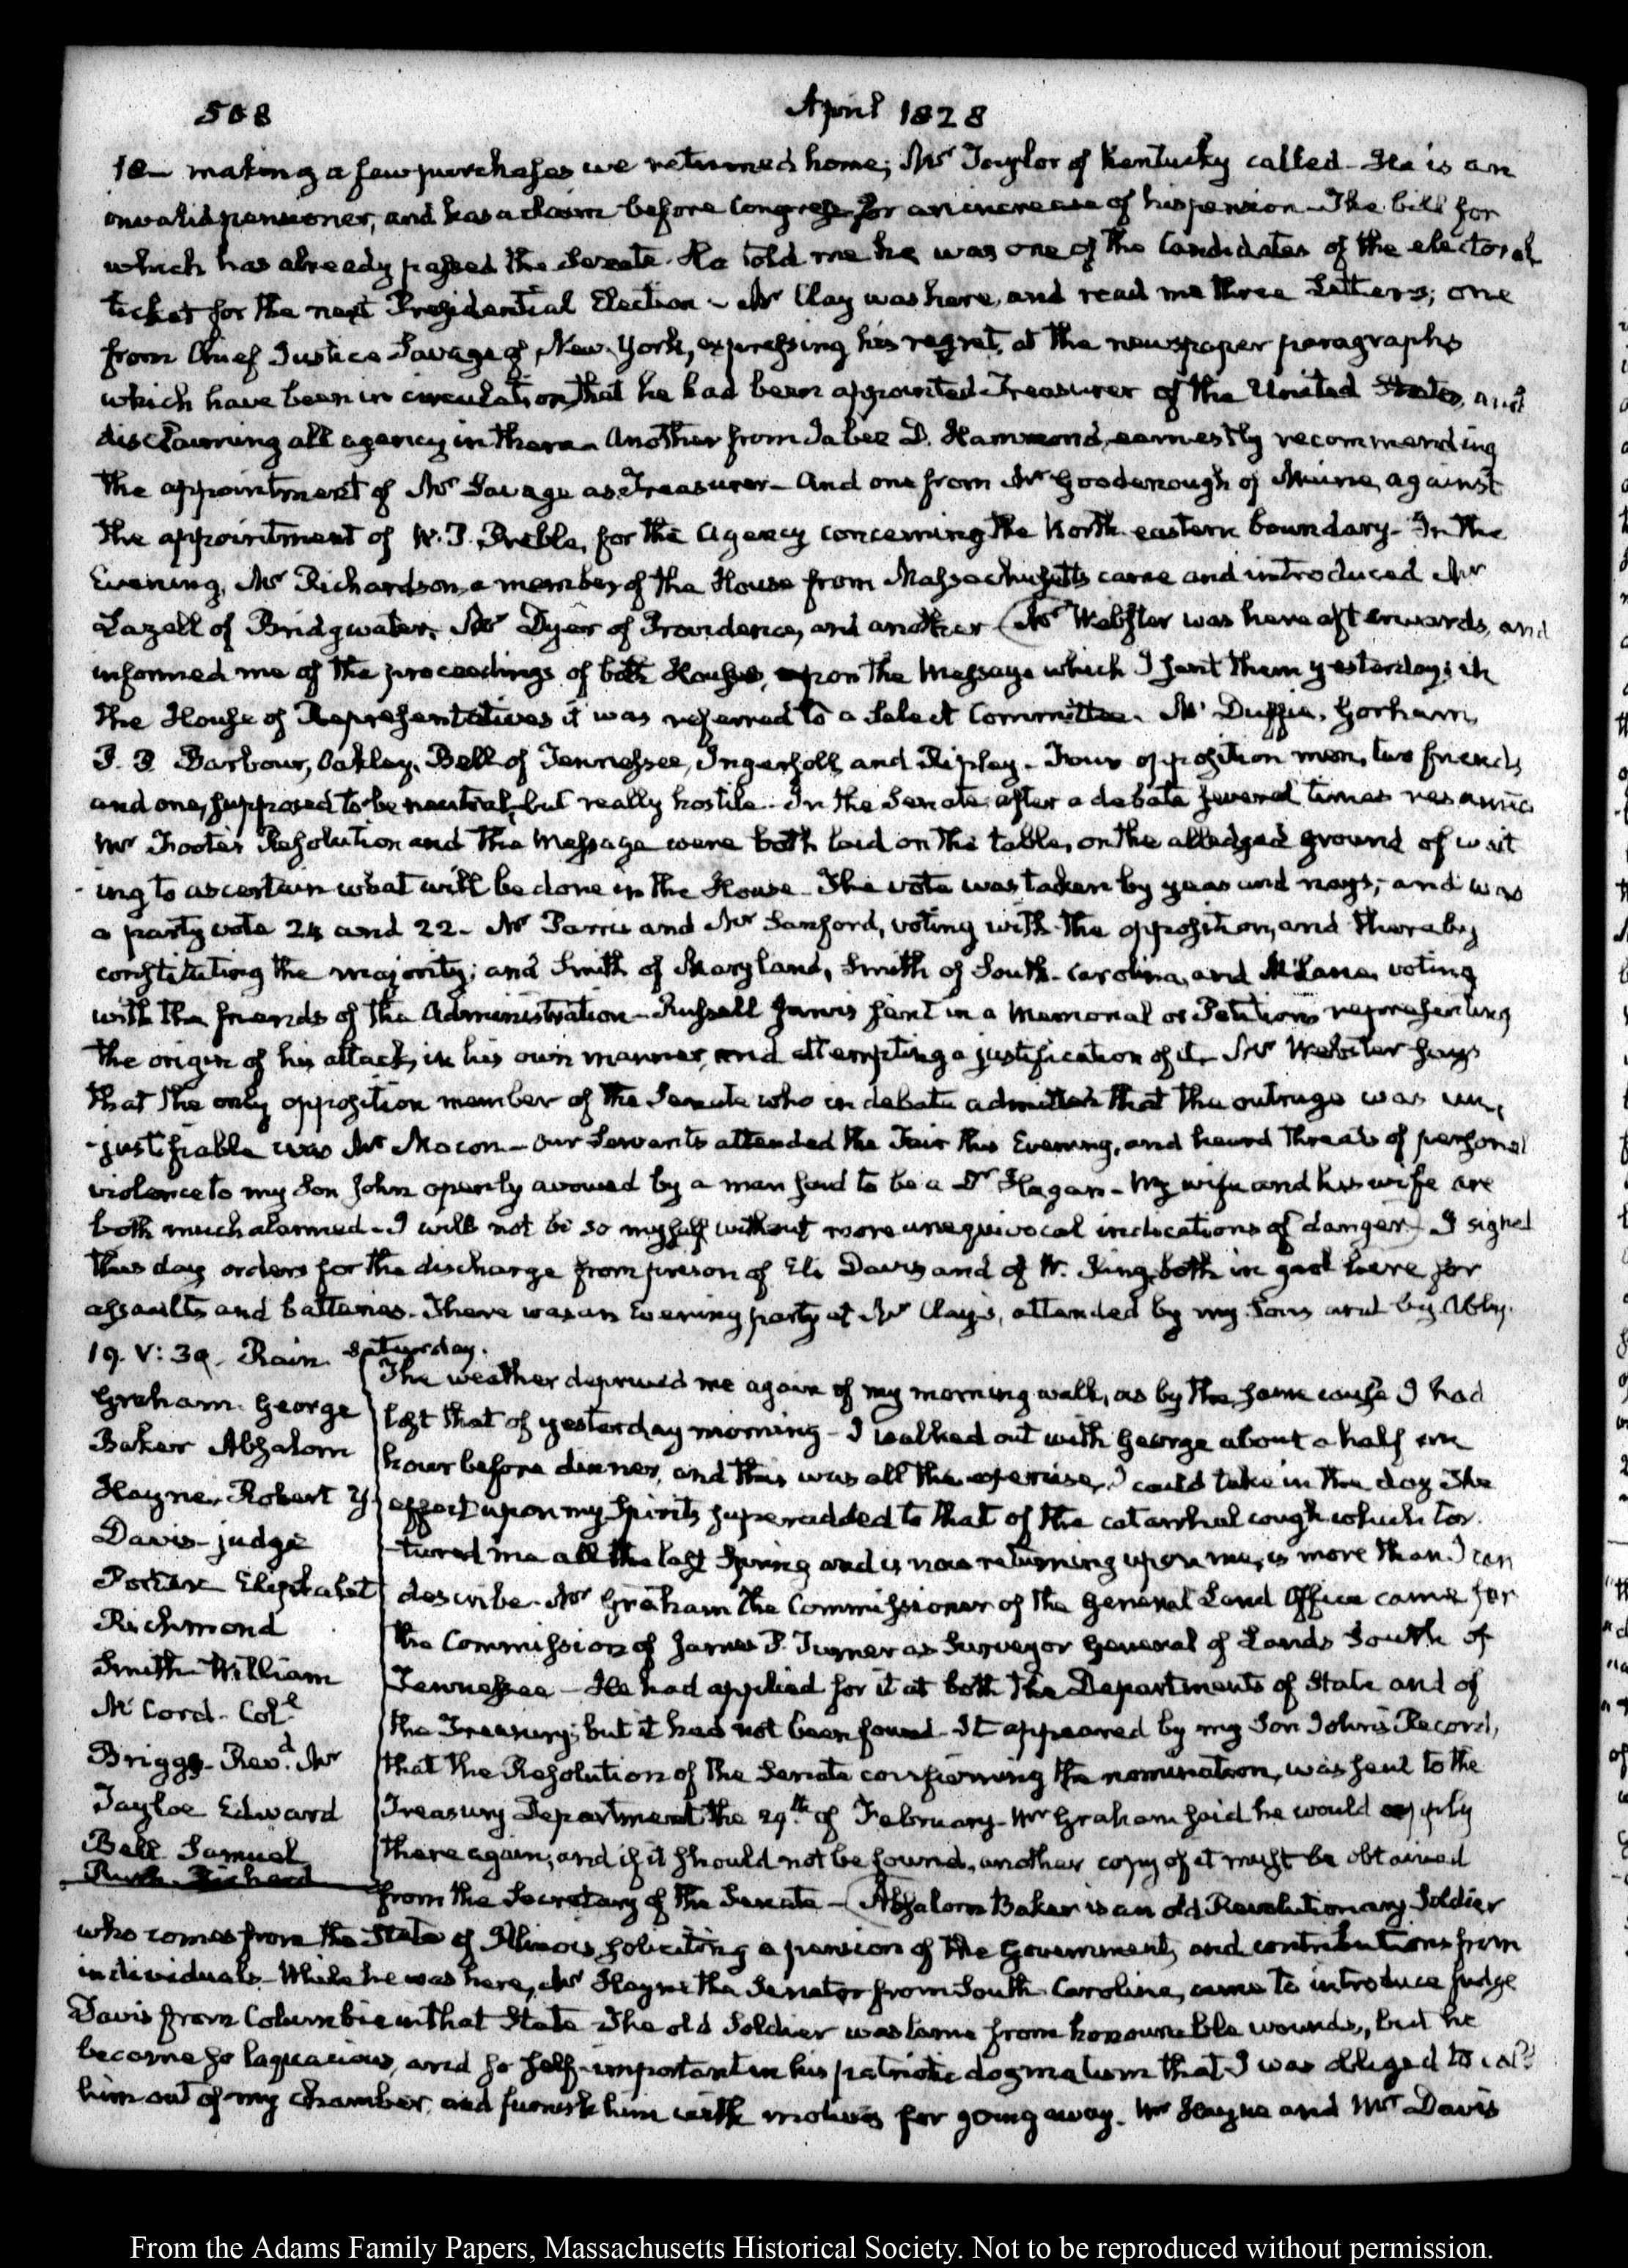 508
April 1828
18— making a few purchases we returned home; Mr Taylor of Kentucky called— He is an
invalid pensioner, and has a claim before Congress for an increase of his pension— The bill for
which has already passed the Senate. He told me he was one of the Candidates of the electoral
ticket for the next Presidential Election— Mr Clay was here, and read me three Letters; one
from Chief Justice Savage of New York, expressing his regret, at the newspaper paragraphs
which have been in circulation, that he had been appointed Treasurer of the United States, and
disclaiming all agency in them— Another from Jabez D. Hammond, earnestly recommending
the appointment of Mr Savage as Treasurer— And one from Mr Goodenough of Maine, against
the appointment of W. P. Preble, for the Agency concerning the North-eastern boundary— In the
Evening, Mr Richardson a member of the House from Massachusetts came and introduced Mr
Lazell of Bridgwater, Mr Dyer of Providence, and another (Mr Webster was here afterwards, and
informed me of the proceedings of both Houses, upon the Message which I sent them yesterday; in
the House of Representatives it was referred to a Select Committee. Mc Duffie, Gorham,
P. P. Barbour, Oakley, Bell of Tennessee, Ingersoll, and Ripley— Four opposition men, two friends
and one, supposed to be neutral, but really hostile. In the Senate, after a debate several times resumed
Mr Foote's Resolution and the Message were both laid on the table, on the alledged ground of wait
-ing to ascertain what will be done in the House— The vote was taken by yeas and nays; and was
a party vote 24 and 22— Mr Parris and Mr Sanford, voting with the opposition, and thereby
constituting the majority; and Smith of Maryland, Smith of South-Carolina, and McLane, voting
with the friends of the Administration— Russell Jarvis sent in a Memorial or Petition representing
the origin of his attack, in his own manner, and attempting a justification of it— Mr Webster says
that the only opposition member of the Senate who in debate admitted that the outrage was un-
-justifiable was Mr Macon— Our Servants attended the Fair this Evening, and heard threats of personal
violence to my Son John openly avowed by a man said to be a Dr Hagan— My wife and his wife are
both much alarmed— I will not be so myself without more unequivocal indications of danger— I signed
this day orders for the discharge from prison of Eli Davis and of W. King, both in gaol here for
assaults and batteries. There was an Evening party at Mr Clay's, attended by my Sons and by Abby.
19. V: 30. Rain. Saturday.
Graham. George
Baker Absalom
Hayne, Robert Y.
Davis— judge
Potter Eliphalet
Richmond
Smith William
McCord— Col
Briggs— Revd. Mr
Tayloe Edward
Bell Samuel
Rush. Richard
The weather deprived me again of my morning walk, as by the same cause I had
lost that of yesterday morning— I walked out with George about a half an
hour before dinner, and this was all the exercise, I could take in the day The
effect upon my Spirits superadded to that of the catarrhal cough which tor
-tured me all the last Spring and is now returning upon me, is more than I can
describe— Mr Graham the Commissioner of the General Land Office came for
the Commission of James P. Turner as Surveyor General of Lands South of
Tennessee— He had applied for it at both the Departments of State and of
the Treasury; but it had not been found— It appeared by my Son John's Record,
that the Resolution of the Senate confirming the nomination, was sent to the
Treasury Department the 29th of February— Mr Graham said he would apply
there again; and if it should not be found, another copy of it must be obtained
from the Secretary of the Senate— (Absalom Baker is an old Revolutionary Soldier
who comes from the State of Illinois, soliciting a pension of the Government, and contributions from
individuals— While he was here, Mr Hayne the Senator from South Carolina, came to introduce Judge
Davis from Columbia in that State The old Soldier was lame from honourable wounds, but he
became so loquacious, and so self-important in his patriotic dogmatism that I was obliged to call
him out of my chamber, and furnish him with motives for going away. Mr Hayne and Mr Davis
From the Adams Family Papers, Massachusetts Historical Society. Not to be reproduced without permission.